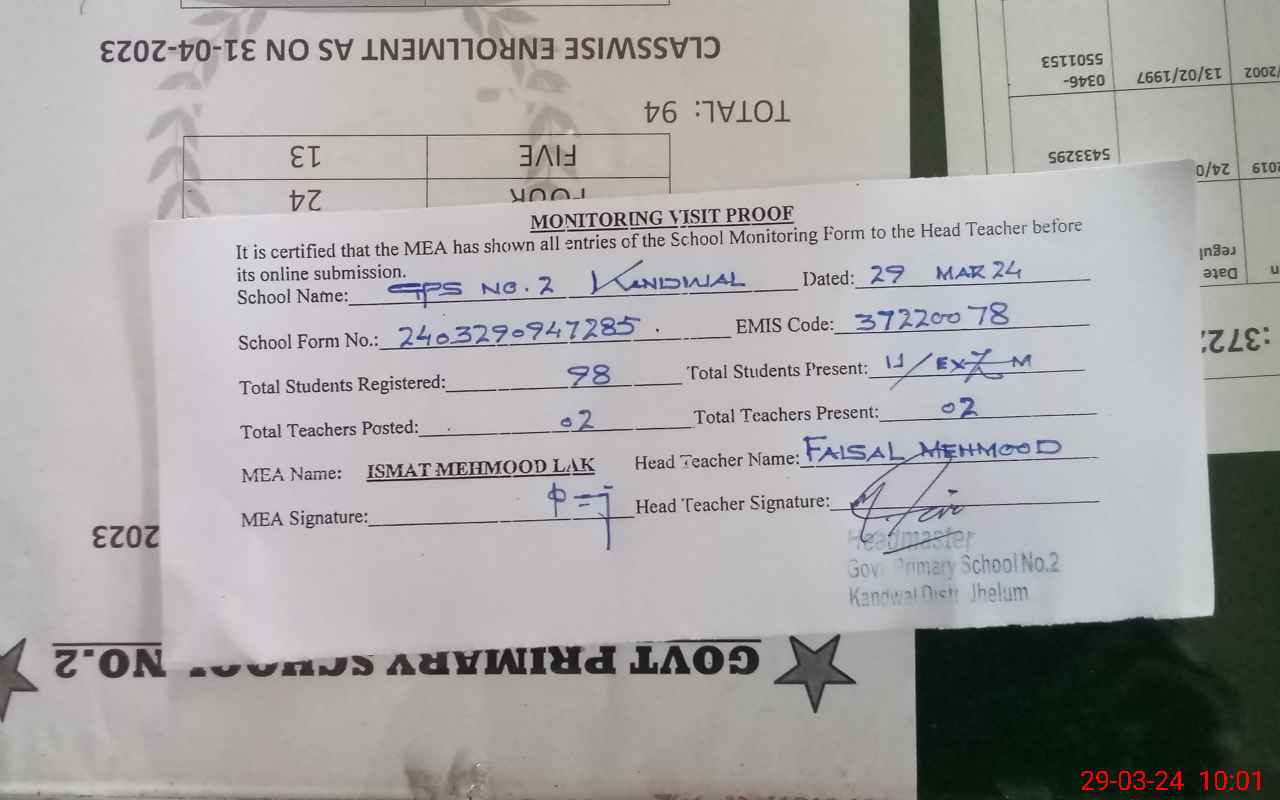 CLASSWISE ENROLLMENT AS ON 31-04-2023
TOTAL: 94
FIVE 13
FOUR 24
0346-
5501153
13/02/1997
/2002
5433295
24/0
2019
regul
Date
:372
MONITORING VISIT PROOF
It is certified that the MEA has shown all entries of the School Monitoring Form to the Head Teacher before
its online submission.
School Name: GPS NO. 2 KANDWAL Dated: 29 MAR 24
School Form No.: 2403290947285 . EMIS Code: 37220078
Total Students Registered: 98 Total Students Present:
Total Teachers Posted: 02 Total Teachers Present: 02
MEA Name: ISMAT MEHMOOD LAK Head Teacher Name: FAISAL MEHMOOD
MEA Signature: Head Teacher Signature:
Headmaster
Govt Primary School No.2
Kandwal Distt Jhelum
2023
GOVT PRIMARY SCHOOL NO.2
29-03-24 10:01